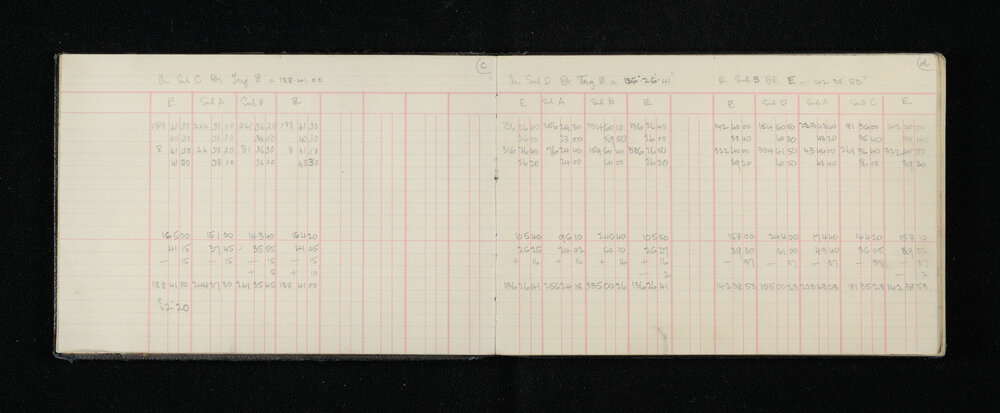 c
On Sub C Br. Trig E = 188.41.00
E Sub A Sub B E
188 41.30 244 38.00 261 36.20 188 41.30
40.30 36.30 34.50 40.30
8 41.50 64 38.20 81 36.30 8 41.50
41.20 38.10 36.00 40.30
165.00 151.00 143.40 164.20
41.15 37.45 35.55 41.05
- 15 - 15 - 15 - 15
+ 5 + 10
188 41.00 244 37.30 261 35.45 188 41.00
d
On Sub D Br Trig E = 136° 26' 41"
E Sub A Sub B E
136 26.40 256 24.30 334 60.10 136 26.40
26.00 23.00 59.50 26.00
316 26.40 76 24.40 154 60.40 316 26.50
26.20 24.00 60.00 26.20
105.40 96.10 240.40 105.50
26.25 24.02 60.10 26.27
+ 16 + 16 + 16 + 16
- 2
136 26.41 256 24 18 335 00 26 136 26 41
On Sub B Br. E = 142 38 53"
E Sub D Sub A Sub C E
142 40.00 154 60.50 223 43.40 81 36.00 142 40.00
38.40 60.30 43.20 35.40
322 40.00 334 61.50 43 44.00 261 36.40 322 40.00
39.20 60.50 43.40 36.00 39.30
158.20 244.00 174.40 144.20 158.10
39.30 61.00 43.40 36.05 39.32
- 37 - 37 - 37 - 37
- 2
142 38 53 155 00 23 223 43 03 81 35 28 142 38 53